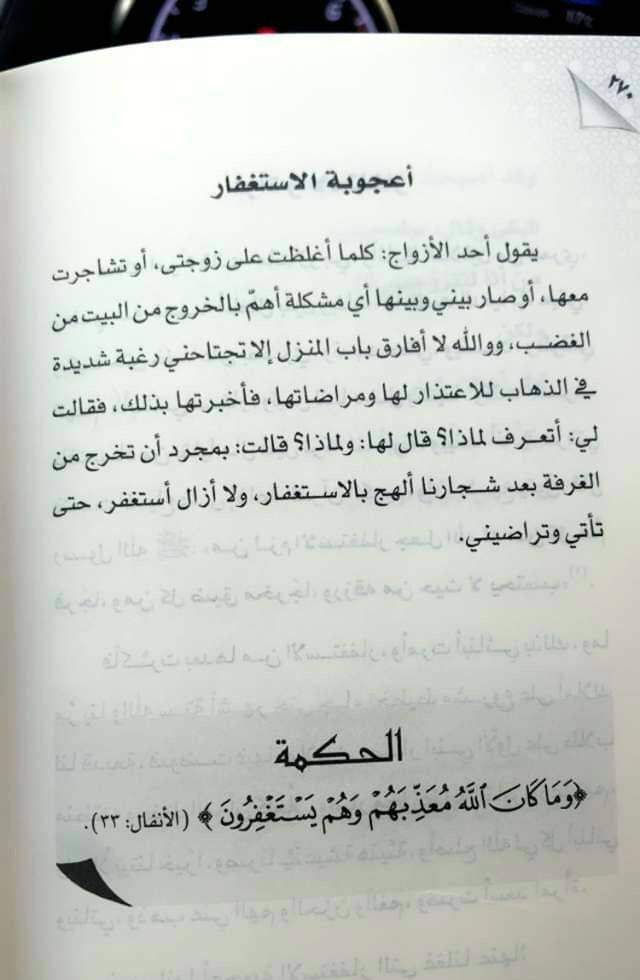 ٢٧٠
أعجوبة الاستغفار
يقول أحد الأزواج: كلما أغلظت على زوجتى، أو تشاجرت
معها، أو صار بيني وبينها أي مشكلة أهمّ بالخروج من البيت من
الغضب، ووالله لا أفارق باب المنزل إلا تجتاحني رغبة شديدة
في الذهاب للاعتذار لها ومراضاتها، فأخبرتها بذلك، فقالت
لي: أتعرف لماذا؟ قال لها: ولماذا؟ قالت: بمجرد أن تخرج من
الغرفة بعد شجارنا ألهج بالاستغفار، ولا أزال أستغفر، حتى
تأتي وتراضيني.
الحكمة
﴿وَمَا كَانَ ٱللَّهُ مُعَذِّبَهُمْ وَهُمْ يَسْتَغْفِرُونَ﴾ (الأنفال: ٣٣).